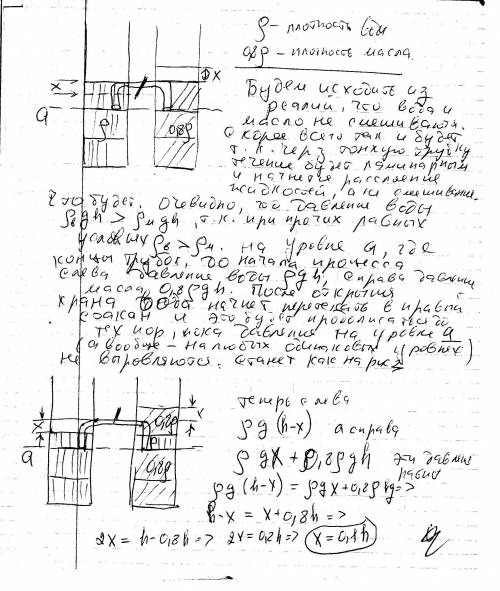 ρ - плотность воды
0,8ρ - плотность масла.
x
x
a
ρ
0,8ρ
Будем исходить из
реалий, что вода и
масло не смешиваются.
Скорее всего так и будет
т.к. через тонкую трубку
течение будет ламинарным
и начнётся расслоение
жидкостей, а не смешивание.
Что будет. Очевидно, что давление воды
ρвgh > ρмgh, т.к. при прочих равных
условиях ρв > ρм. на уровне a, где
концы трубок, до начала процесса
слева давление воды ρgh, справа давление
масла 0,8ρgh. После открытия
крана вода начнет перетекать в правый
стакан и это будет продолжаться до
тех пор, пока давления на уровне a
(а вообще - на любых одинаковых уровнях)
не выровняются. Станет как на рис 2
x
x
0,8ρ
a
ρ
0,8ρ
теперь слева
ρg(h-x) а справа
ρgx + 0,8ρgh эти давления
равны
ρg(h-x) = ρgx+0,8ρhg =>
h-x = x+0,8h =>
2x = h-0,8h => 2x = 0,2h => x=0,1h